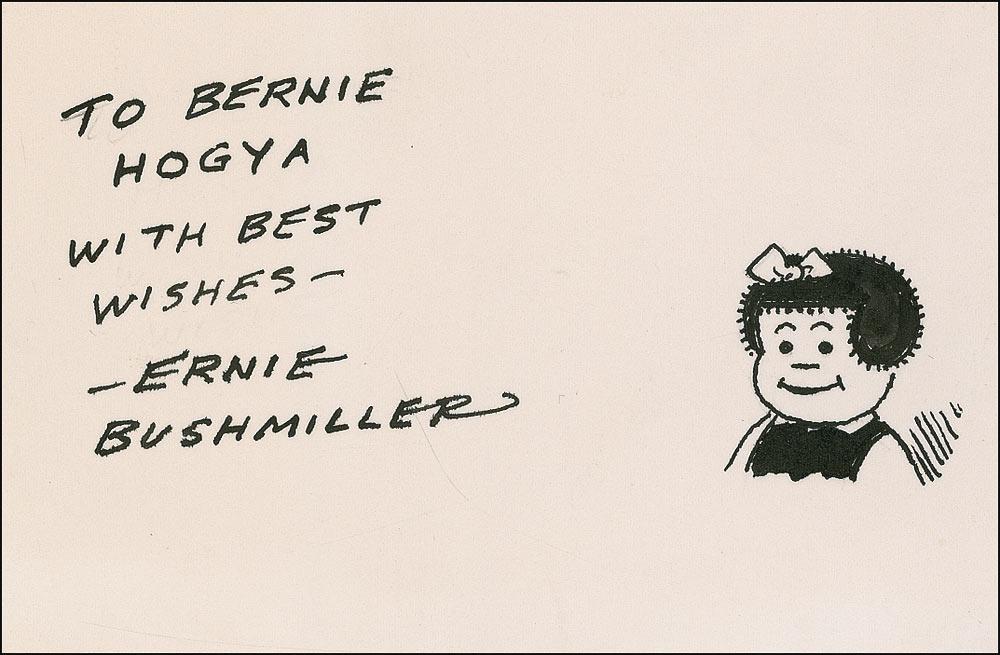 TO BERNIE
HOGYA
WITH BEST
WISHES—
—ERNIE
BUSHMILLER